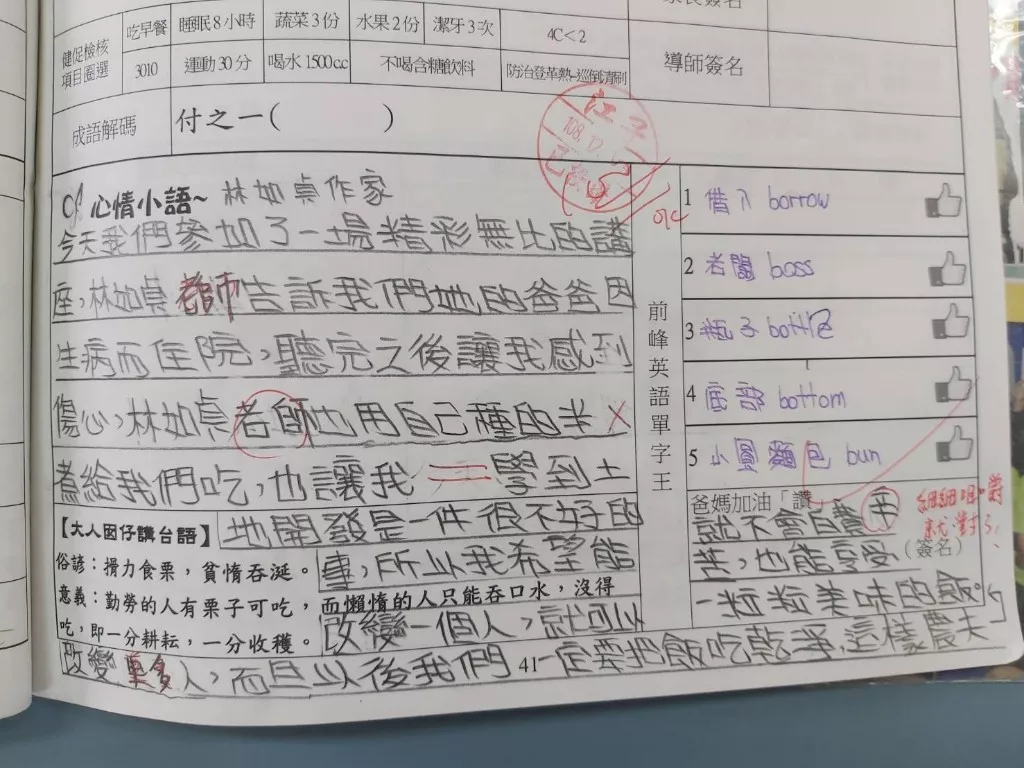 健促檢核項目圈選
吃早餐 睡眠8小時 蔬菜3份 水果2份 潔牙3次 4C<2
3010 運動30分 喝水1500c.c 不喝含糖飲料 防治登革熱-巡倒清刷
導師簽名
成語解碼 付之一( )
心情小語~ 林如貞作家
今天我們參加了一場精彩無比的講
座,林如貞老師告訴我們她的爸爸因
生病而住院,聽完之後讓我感到
傷心,林如貞老師也用自己種的米
煮給我們吃,也讓我 學到土
【大人囡仔講台語】
地開發是一件很不好的
俗諺:搰力食栗,貧惰吞涎。
事,所以我希望能
意義:勤勞的人有栗子可吃,而懶惰的人只能吞口水,沒得
吃,即一分耕耘,一分收穫。
改變一個人,就可以
改變更多人,而且以後我們一定要把飯吃乾淨,這樣農夫
41
前峰英語單字王
1 借入 borrow
2 老闆 boss
3 瓶子 bottle
4 底部 bottom
5 小圓麵包 bun
爸媽加油「讚」
就不會白費辛
苦,也能享受
(簽名)
一粒粒美味的飯。
細細咀嚼
就對了!